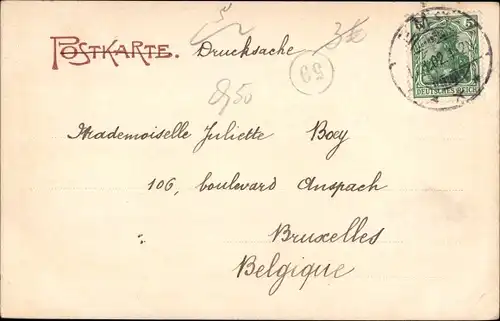 5
3½
POSTKARTE. Drucksache
59
8,50
5
DEUTSCHES REICH
Mademoiselle Juliette Boey
106, boulevard Anspach
Bruxelles
Belgique